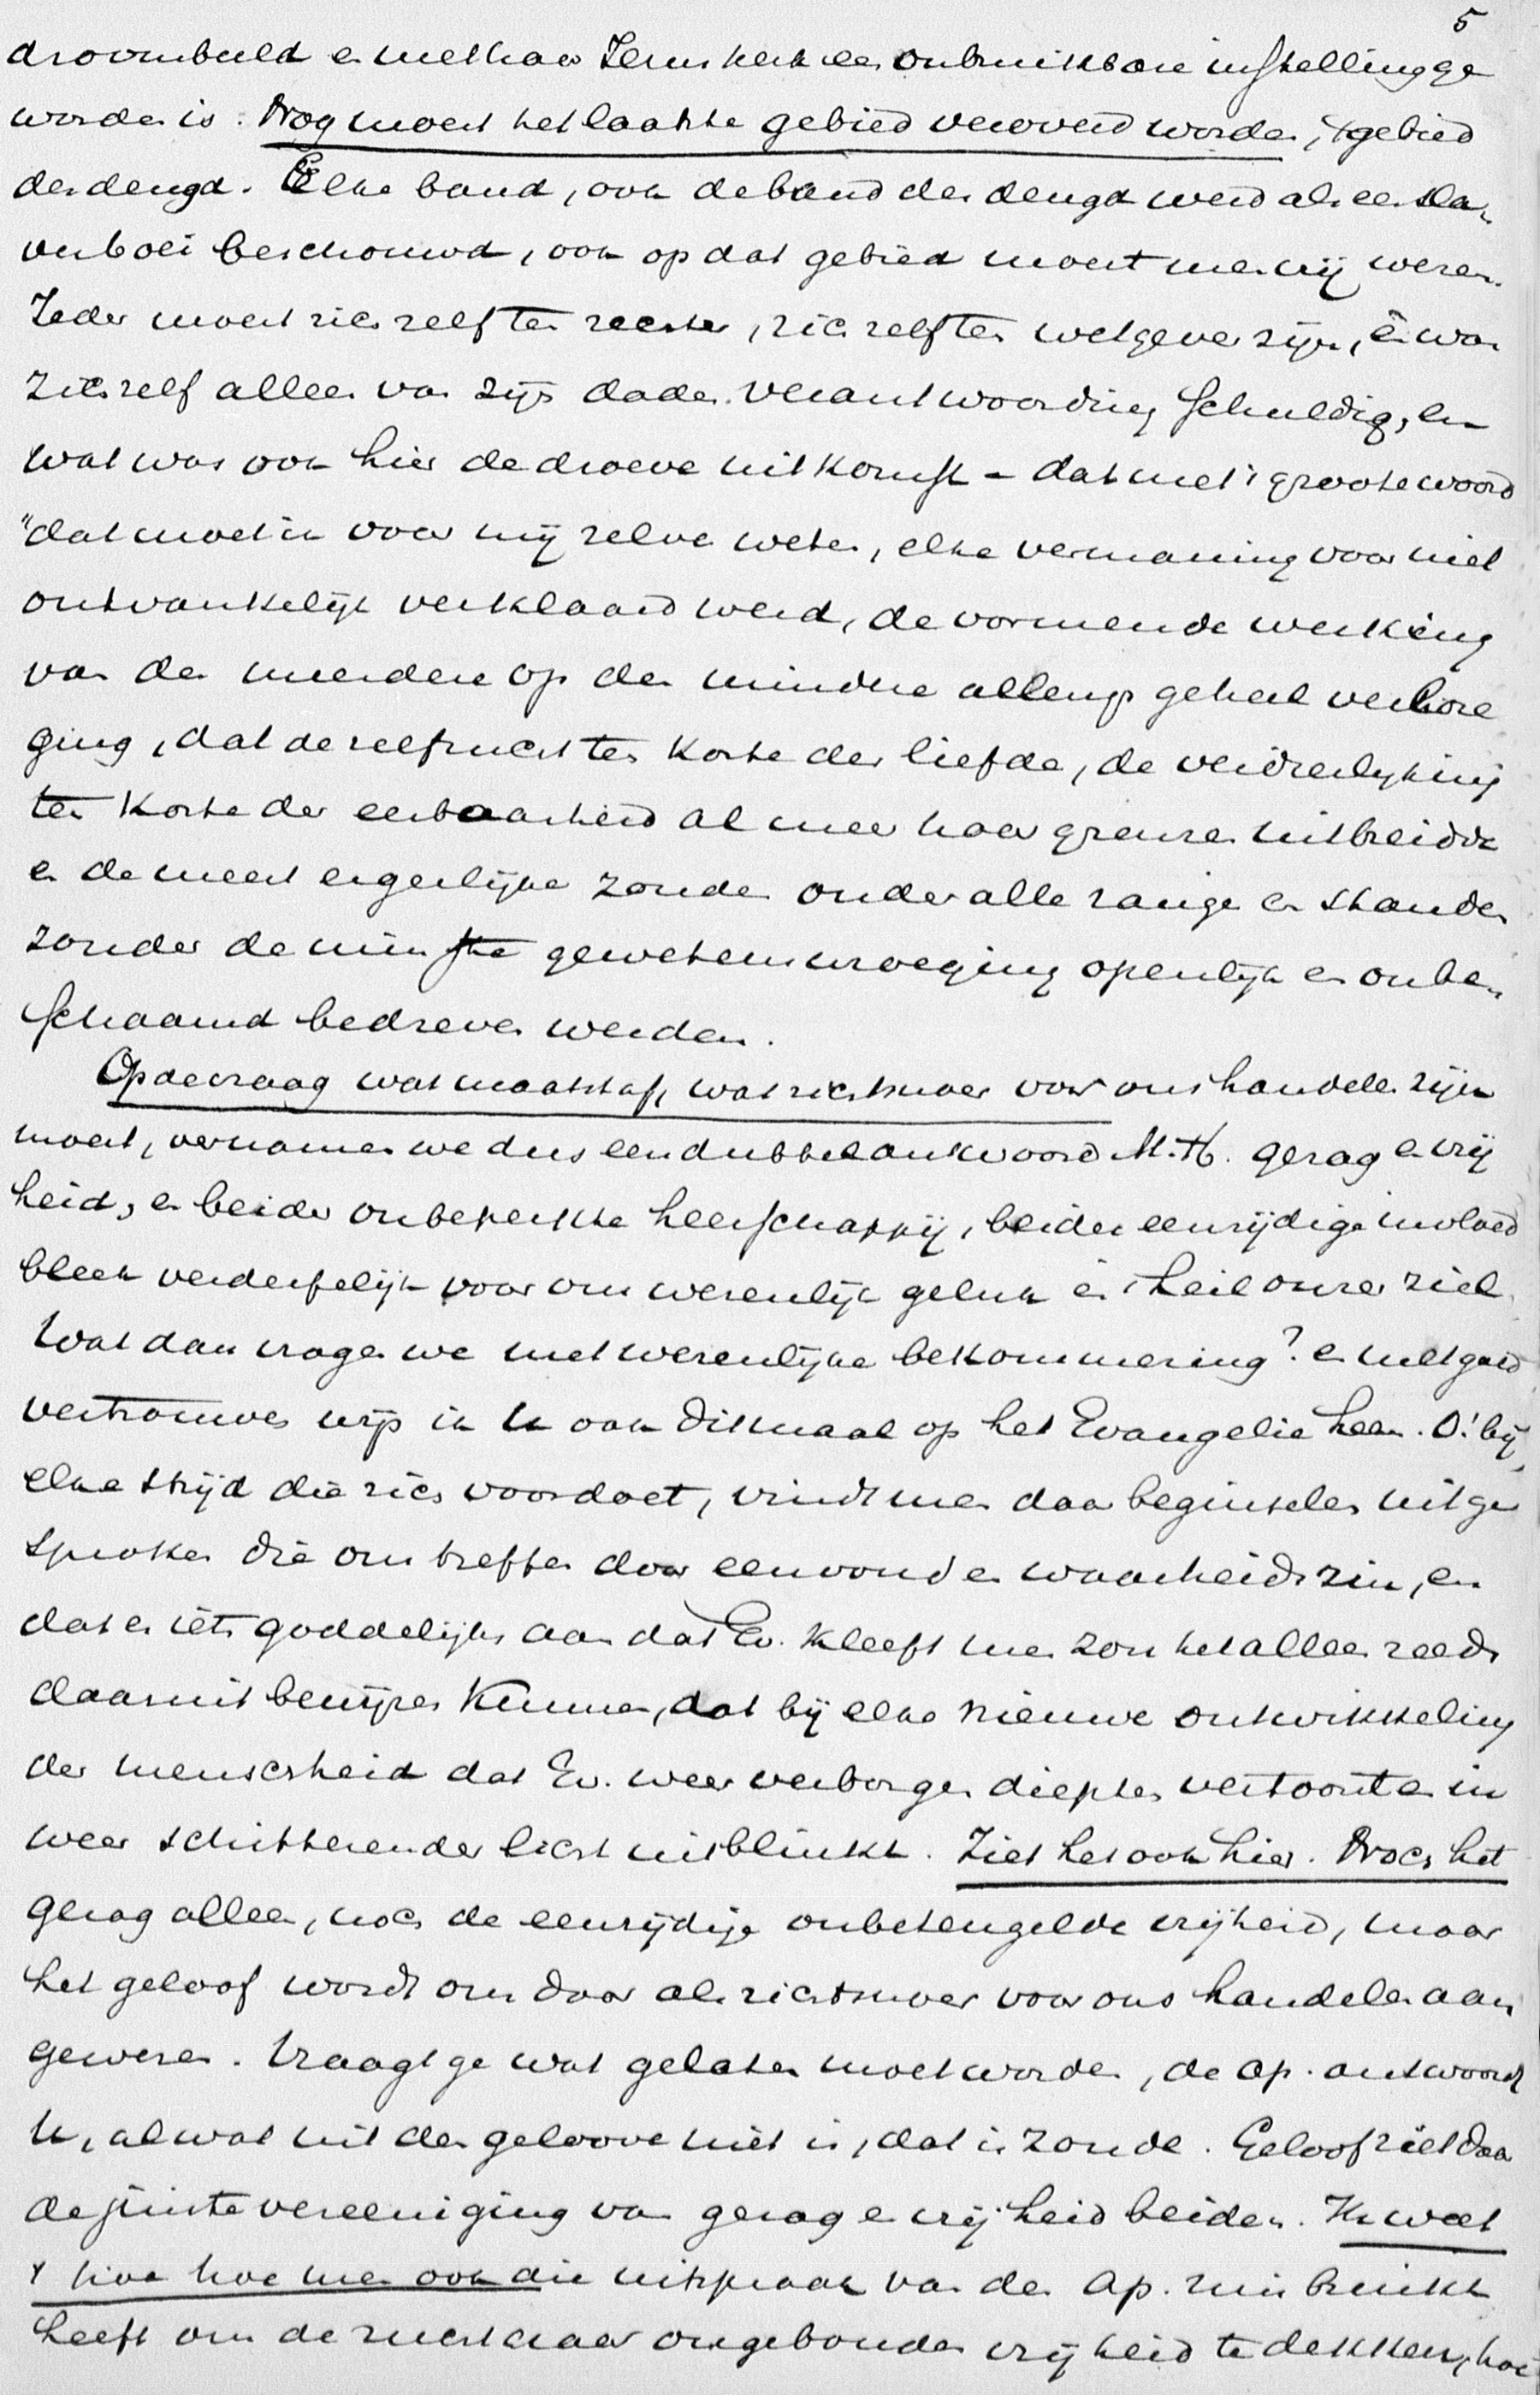 5
droombeeld en met haar Jezus kerk een onbruikbare instelling ge
worden is. Nog moest het laatste gebied veroverd worden, 't gebied
der deugd. Elke band, ook de band der deugd werd als een sla-
venboei beschouwd, ook op dat gebied moest men vrij wezen.
Ieder moest zich zelf ten rechter, zich zelf ten wetgever zijn, en was
zich zelf alleen van zijn daden verantwoording schuldig, en
wat was ook hier de droeve uitkomst – dat met 't groote woord
"dat moet ik voor mij zelve weten, elke vermaning voor niet
ontvankelijk verklaard werd, de vormende werking
van den meerdere op den mindere allengs geheel verlore
ging, dat de zelfzucht ten koste der liefde, de verdierlijking
ten koste der eerbaarheid al meer haar grenzen uitbreidde
en de meest ergerlijke zonden onder alle rangen en standen
zonder de minste gewetenswroeging openlijk en onbe-
schaamd bedreven werden.
Op de vraag wat maatstaf, wat richtsnoer voor ons handelen zijn
moest, vernamen we dus een dubbel antwoord M.H. gezag en vrij
heid, en beider onbeperkte heerschappij, beider eenzijdige invloed
bleek verderfelijk voor ons wezenlijk geluk en 't heil onzer ziel.
Wat dan vragen we met wezenlijke bekommering? en met goed
vertrouwen wijs ik U ook ditmaal op het Evangelie heen. O! bij
elke strijd die zich voordoet, vindt men daar beginselen uitge
sproken die ons treffen door eenvoud en waarheidszin, en
dat er iets goddelijks aan dat Ev. kleeft men zou het alleen reeds
daaruit bewijzen kunnen, dat bij elke nieuwe ontwikkeling
der menschheid dat Ev. weer verborgen diepten vertoont en in
weer schitterender licht uitblinkt. Ziet het ook hier. Noch het
gezag alleen, noch de eenzijdige onbeteugelde vrijheid, maar
het geloof wordt ons daar als richtsnoer voor ons handelen aan
gewezen. Vraagt ge wat gelaten moet worden, de Ap. antwoordt
U, al wat uit den geloove niet is, dat is zonde. Geloof ziet daar
de juiste vereeniging van gezag en vrijheid beiden. Ik weet
hoe men ook die uitspraak van den Ap. misbruikt
heeft om de zucht naar ongebonden vrijheid te dekken, hoe